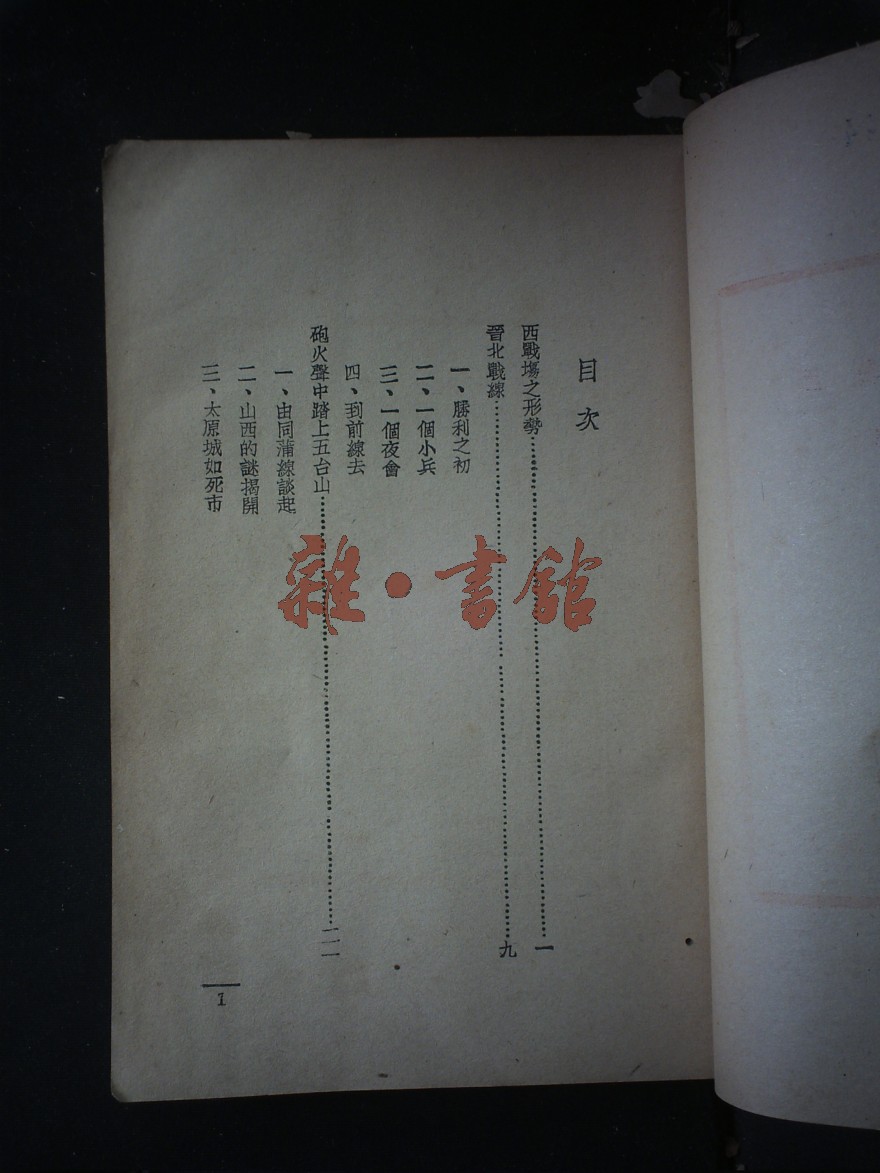 目次
西戰場之形勢……一
晉北戰線……九
一、勝利之初
二、一個小兵
三、一個夜會
四、到前線去
砲火聲中踏上五台山……二一
一、由同蒲線談起
二、山西的謎揭開
三、太原城如死市
1
雜·書館